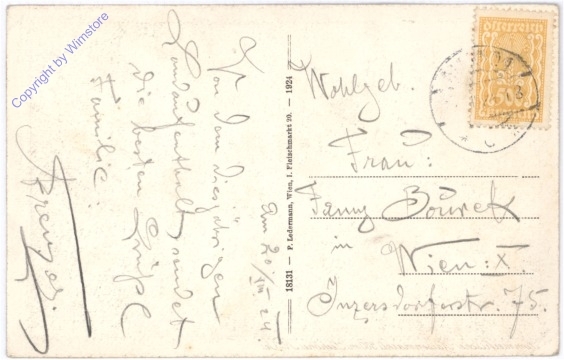 Von dem diesjährigen
Landaufenthalt sendet
die besten Grüße
Familie
am 20/VIII 24.
18131 — P. Ledermann, Wien, I. Fleischmarkt 20. — 1924
Österreich
500
Wohlgeb.
Frau:
Fanny Bourek
in
Wien: X.
Inzersdorferstr. 75.
Copyright by Wimstore